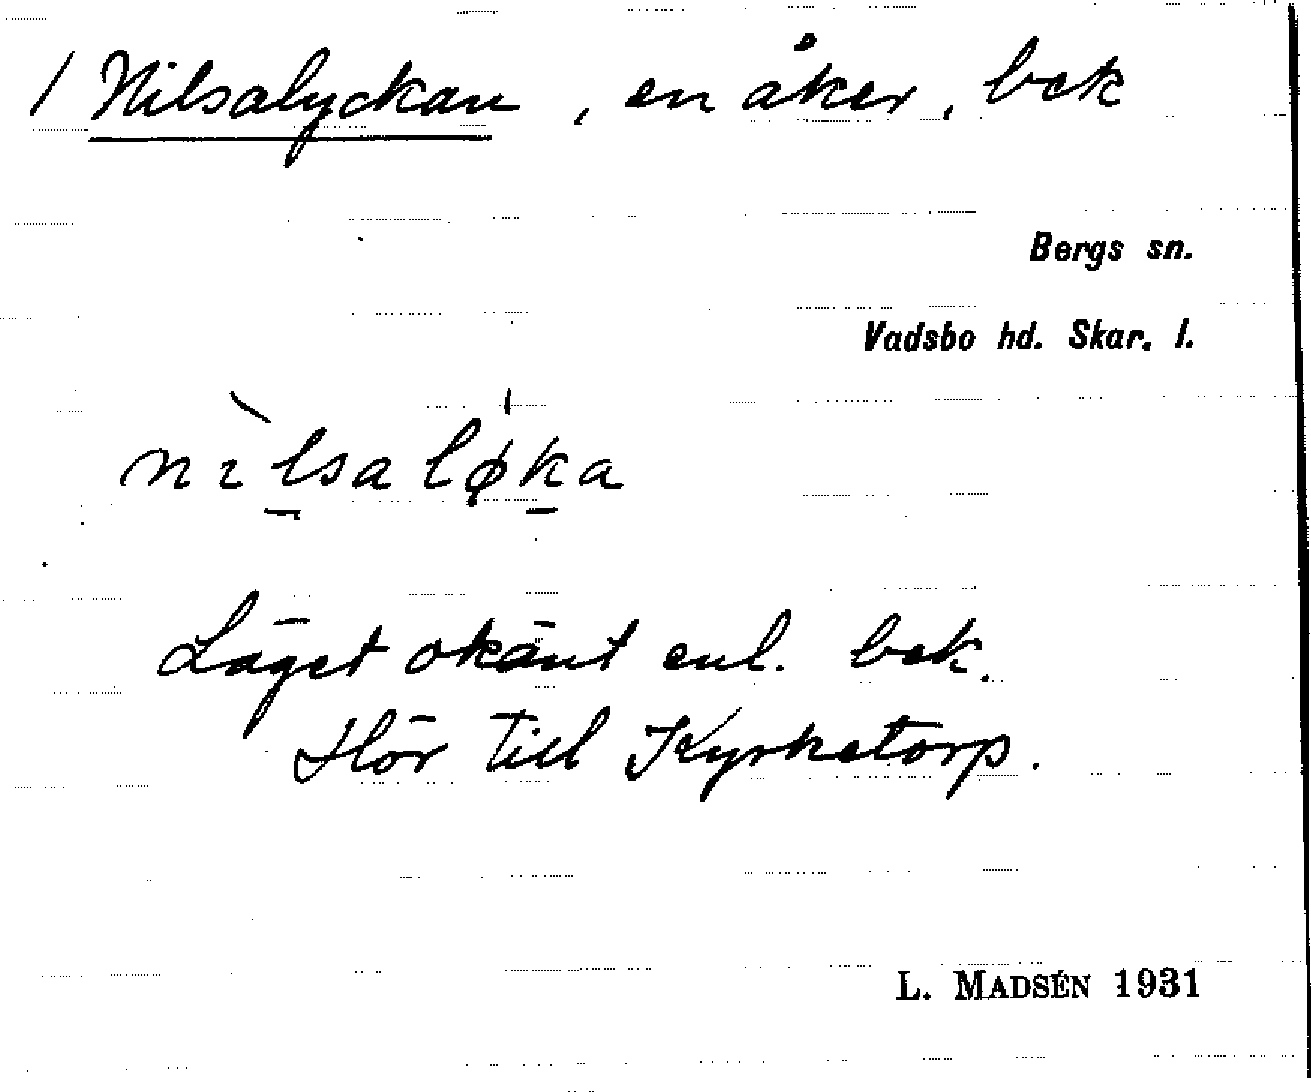 / Nilsalyckan, en åker, bek
Bergs sn.
Vadsbo hd. Skar. l.
nìlsalø̀ka
Läget okänt enl. bek.
Hör till Kyrketorp.
L. MADSÉN 1931